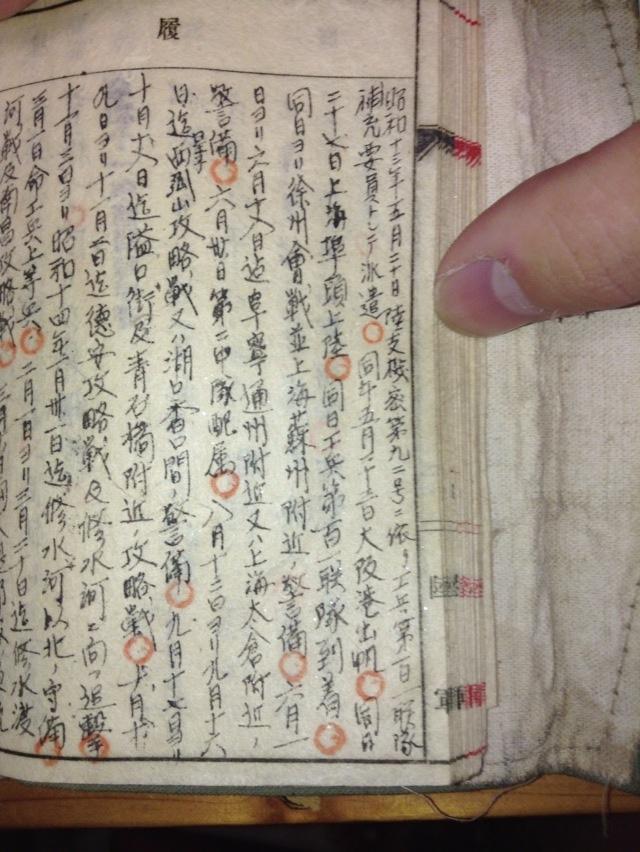 履
昭和十三年五月二十日陸支機密第九二号ニ依リ工兵第百一聯隊
補充要員トシテ派遣○同年五月二十三日大阪港出帆○同月
二十七日上海埠頭上陸○同日工兵第百一聯隊到着○
同日ヨリ徐州會戰並上海蘇州附近ノ警備○六月一
日ヨリ六月十八日迄阜寧通州附近又ハ上海太倉附近ノ
警備○六月廿日第二中隊配属○八月十二日ヨリ九月十六
日迄西孤山攻略戰又ハ湖口香口間ノ警備○九月十七日ヨリ
十月十八日迄隘口街及青石橋附近ノ攻略戰○十月十
九日ヨリ十一月二日迄德安攻略戰及修水河ニ向フ追擊○
十一月三日ヨリ昭和十四年一月卅一日迄修水河以北ノ守備○
月一日命工兵上等兵○二月一日ヨリ三月二十日迄修水渡
河戰及南昌攻略戰○三月
陸
軍